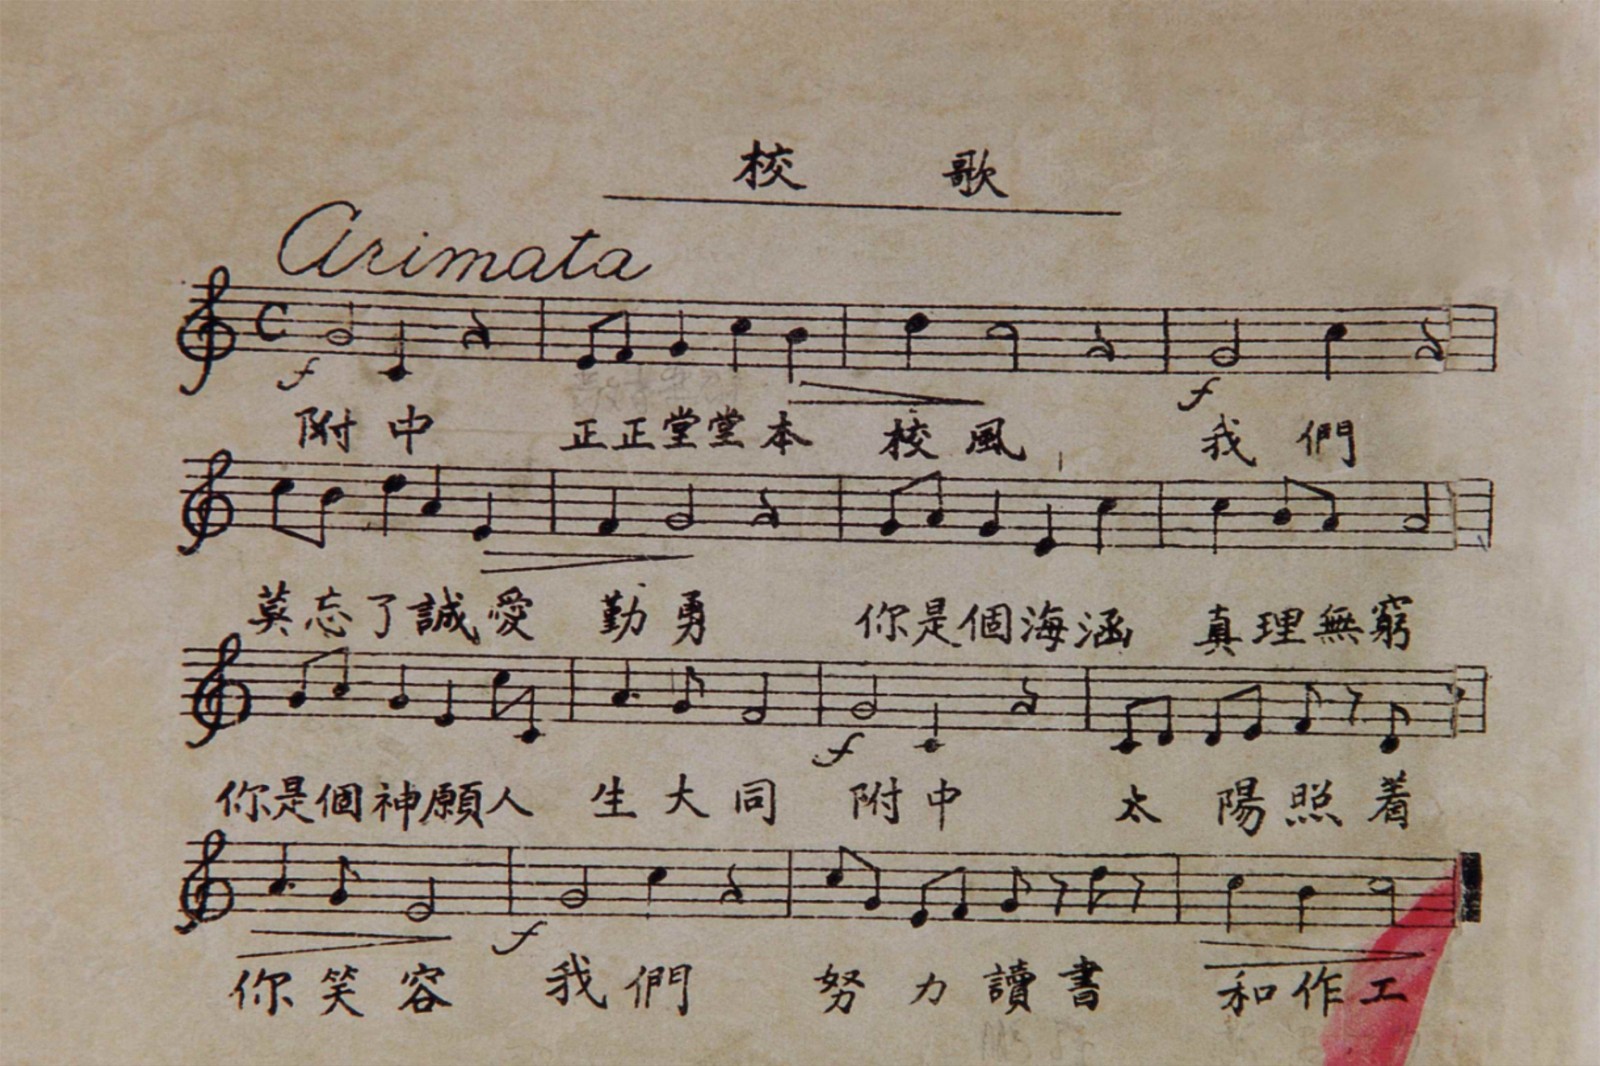 校 歌
Arimata
f f
附中 正正堂堂本 校風 我們
莫忘了誠愛 勤勇 你是個海涵 真理無窮
f
你是個神願人 生大同 附中 太陽照着
f
你笑容 我們 努力讀書 和作工